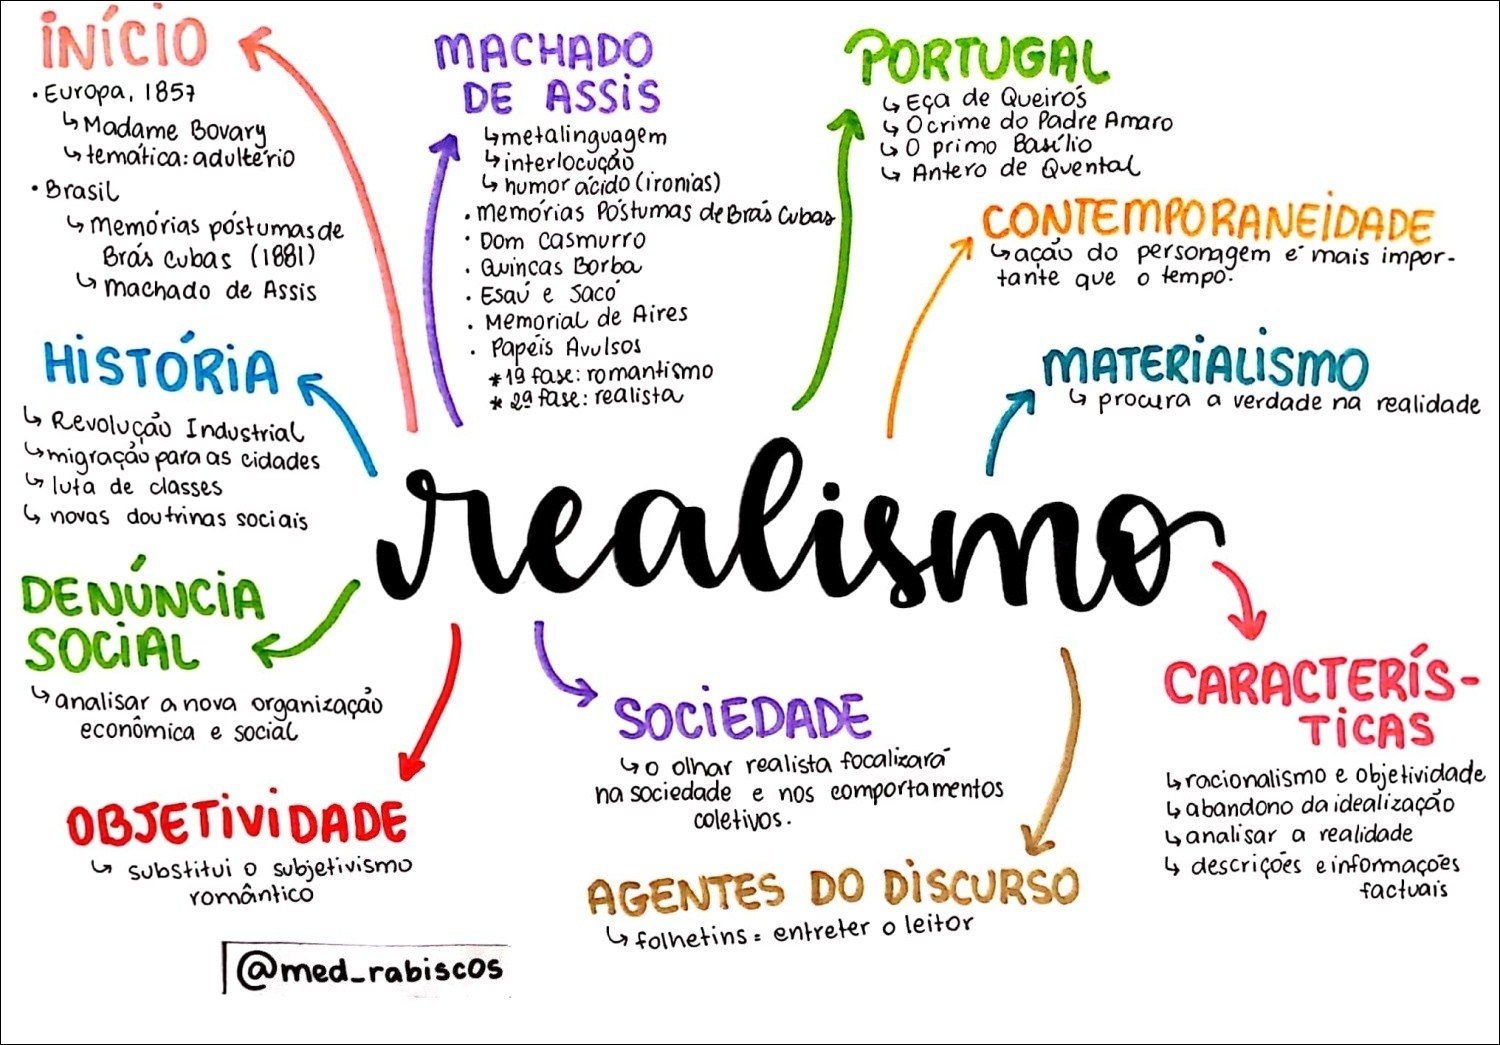 INÍCIO
• Europa, 1857
↳ Madame Bovary
↳ temática: adultério
• Brasil
↳ Memórias póstumas de
Brás Cubas (1881)
↳ Machado de Assis
MACHADO
DE ASSIS
↳ metalinguagem
↳ interlocução
↳ humor ácido (ironias)
• Memórias Póstumas de Brás Cubas
• Dom Casmurro
• Quincas Borba
• Esaú e Jacó
• Memorial de Aires
• Papéis Avulsos
* 1ª fase: romantismo
* 2ª fase: realista
PORTUGAL
↳ Eça de Queirós
↳ O crime do Padre Amaro
↳ O primo Basílio
↳ Antero de Quental
CONTEMPORANEIDADE
↳ ação do personagem é mais impor-
tante que o tempo.
MATERIALISMO
↳ procura a verdade na realidade
HISTÓRIA
↳ Revolução Industrial
↳ migração para as cidades
↳ luta de classes
↳ novas doutrinas sociais
realismo
DENÚNCIA
SOCIAL
↳ analisar a nova organização
econômica e social
OBJETIVIDADE
↳ substitui o subjetivismo
romântico
SOCIEDADE
↳ o olhar realista focalizará
na sociedade e nos comportamentos
coletivos.
AGENTES DO DISCURSO
↳ folhetins = entreter o leitor
CARACTERÍS-
TICAS
↳ racionalismo e objetividade
↳ abandono da idealização
↳ analisar a realidade
↳ descrições e informações
factuais
@med_rabiscos